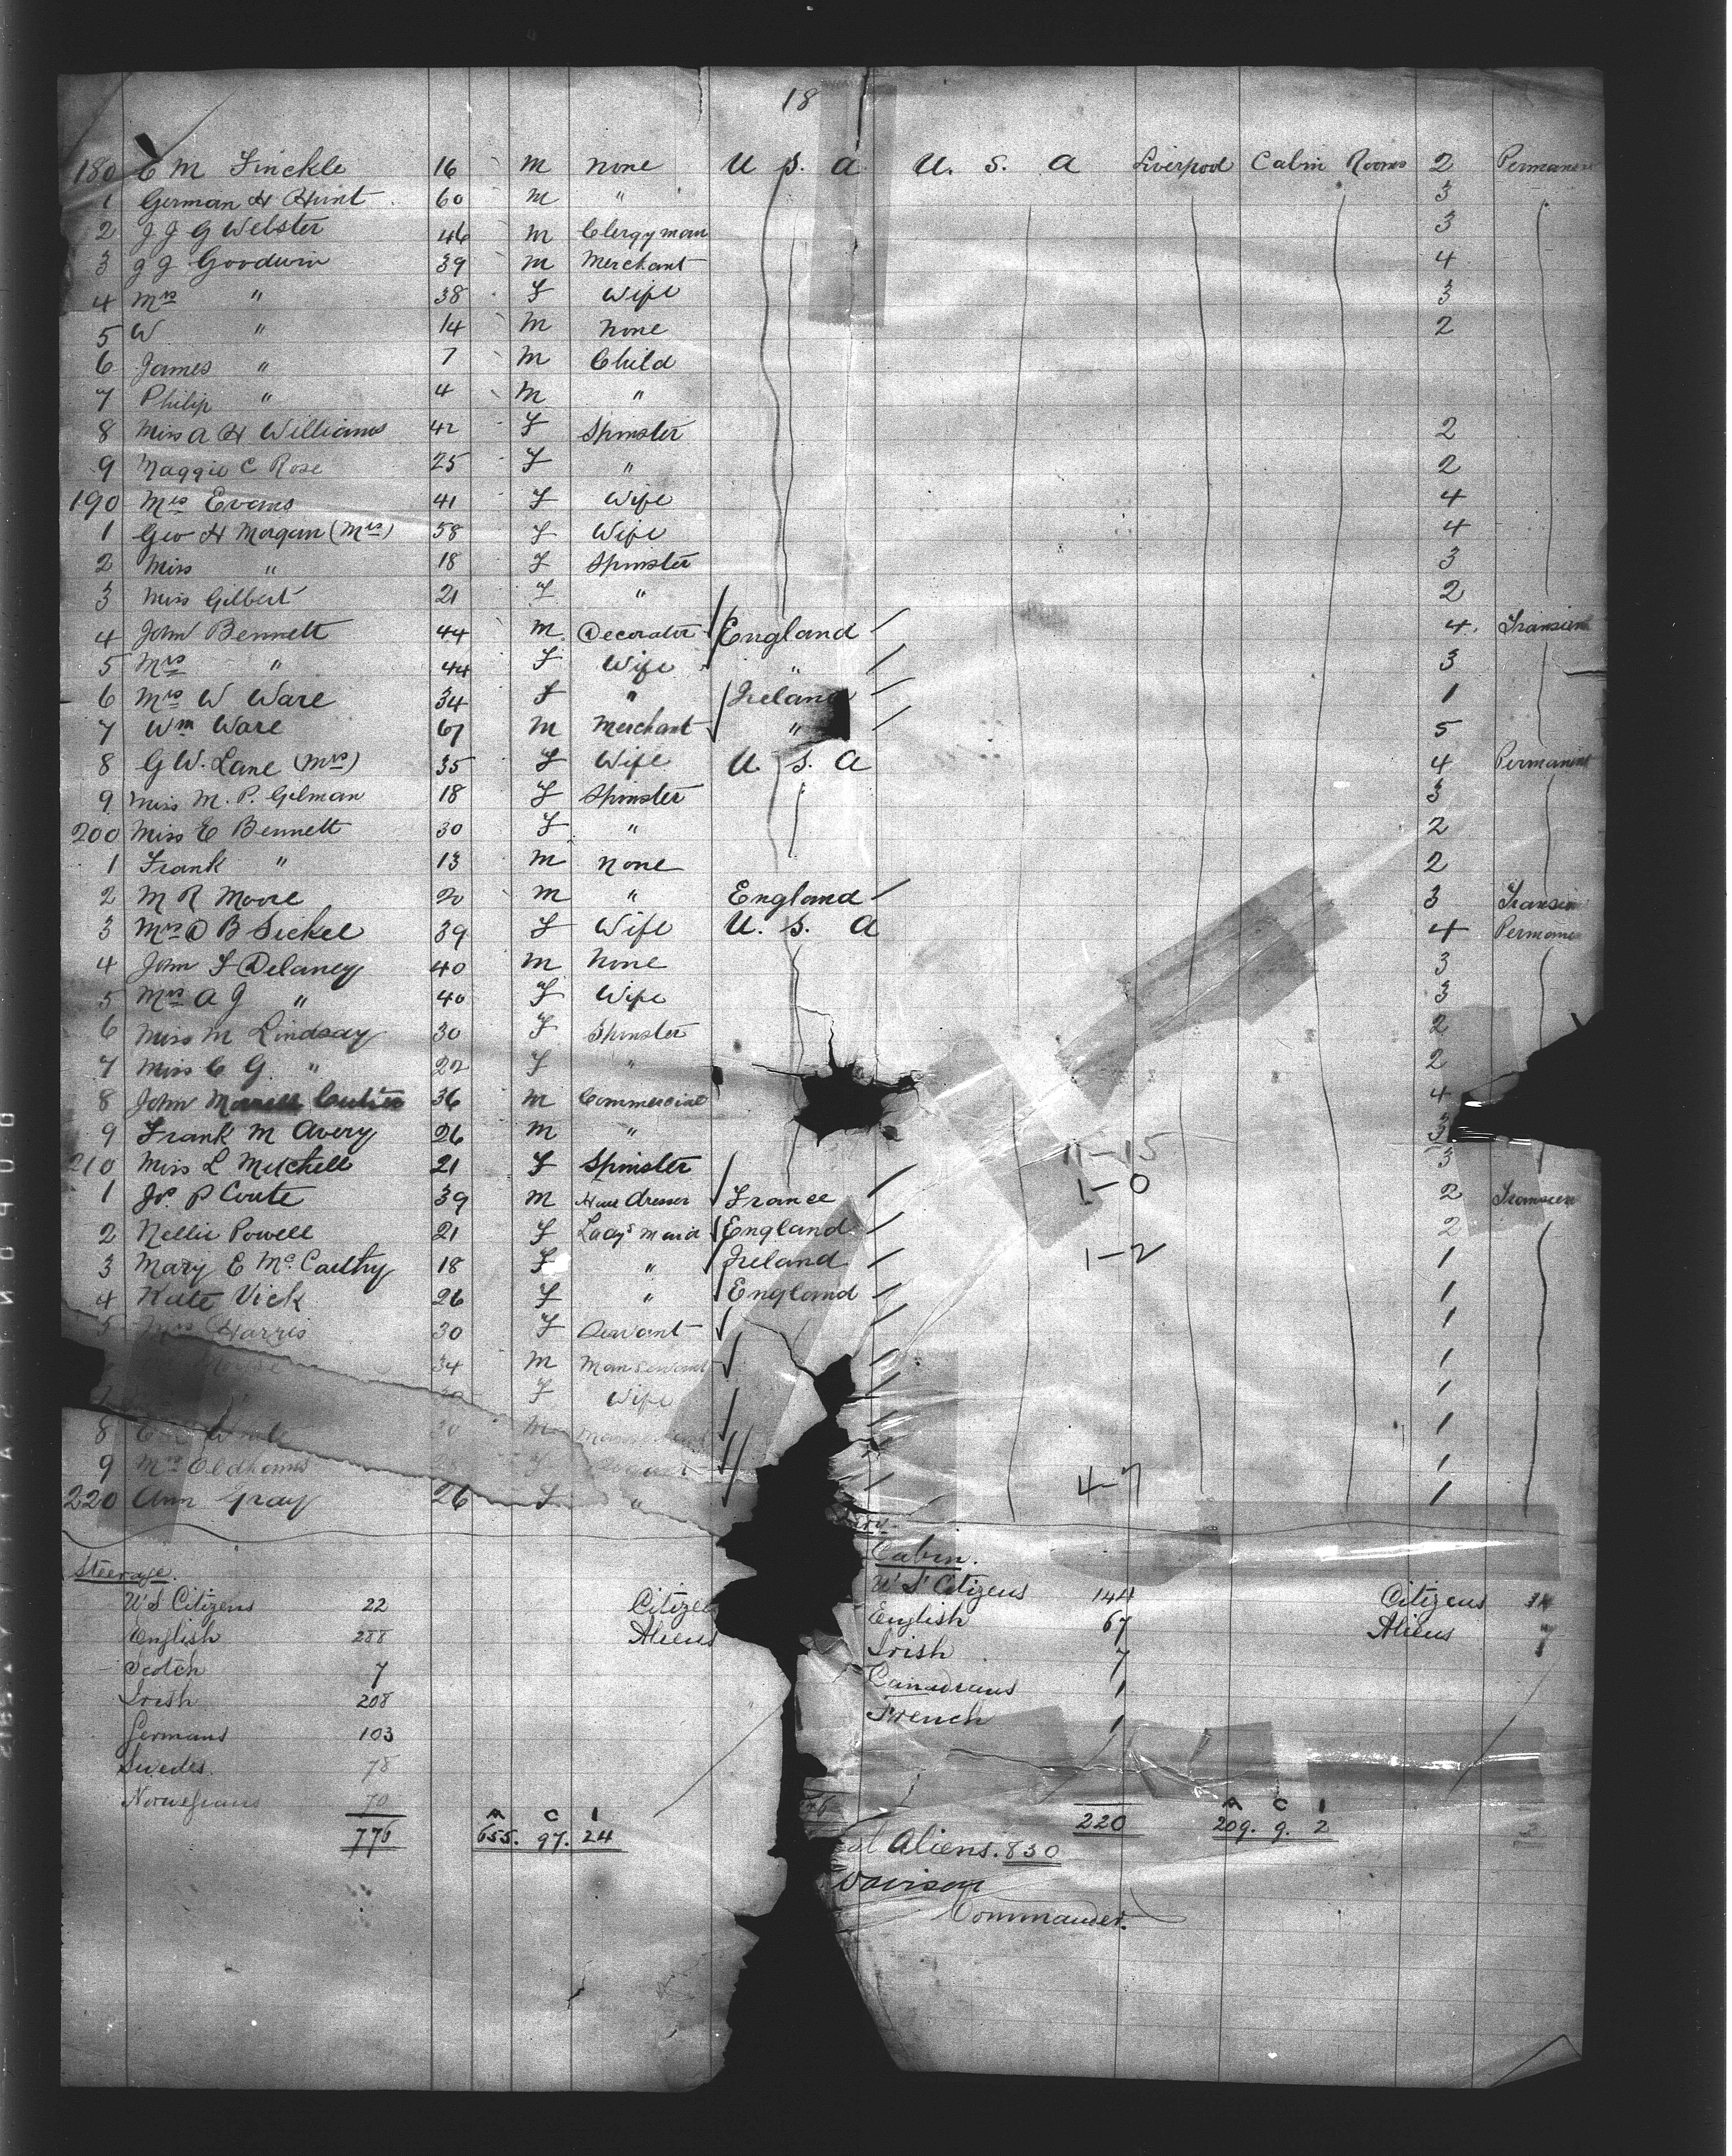 18
180 C M Finckle 16 M None U S. A U. S. A Liverpool Cabin Rooms 2
1 German H Hunt 60 M " 3
2 J J G Webster 46 M Clergyman 3
3 J J Goodwin 39 M Merchant 4
4 Mrs " 38 F Wife 3
5 W " 14 M None 2
6 James " 7 M Child
7 Philip " 4 M "
8 Miss A H Williams 42 F Spinster 2
9 Maggie C Rose 25 F " 2
190 Mrs Evans 41 F Wife 4
1 Geo H Morgan (Mrs) 58 F Wife 4
2 Miss " 18 F Spinster 3
3 Miss Gilbert 21 F " 2
4 John Bennett 44 M Decorator England 4
5 Mrs " 44 F Wife " 3
6 Mrs W Ware 34 F " Ireland 1
7 Wm Ware 67 M Merchant " 5
8 G W. Lane (Mrs) 35 F Wife U. S. A 4 Permanent
9 Miss M. P. Gilman 18 F Spinster 3
200 Miss E Bennett 30 F " 2
1 Frank " 13 M None 2
2 M R Moore 20 M " England 3
3 Mrs D B Sickel 39 F Wife U. S. A 4
4 John F Delaney 40 M None 3
5 Mrs A J " 40 F Wife 3
6 Miss M Lindsay 30 F Spinster 2
7 Miss C G " 22 F " 2
8 John 36 M Commercial 4
9 Frank M Avery 26 M " 3
210 Miss L Mitchell 21 F Spinster 3
1 P Coute 39 M Hair dresser France 1-0 2
2 Nellie Powell 21 F Lady's Maid England 2
3 Mary E McCarthy 18 F " Ireland 1-2 1
4 Kate Vick 26 F " England 1
5 Mrs Harris 30 F Servant 1
34 M Manservant 1
F Wife 1
8 30 M 1
9 Mrs Oldhams 28 F 1
220 Ann Gray 26 F " 4-7 1
Steerage.
US Citizens 22
English 288
Scotch 7
Irish 208
Germans 103
Swedes. 78
Norwegians 70
776
A C I
655. 97. 24
Cabin.
US Citizens 144 Citizens
English 67 Aliens 7
Irish 7
Canadians 1
French 1
220
A C I
209. 9. 2
Aliens. 830
Davison
Commander.